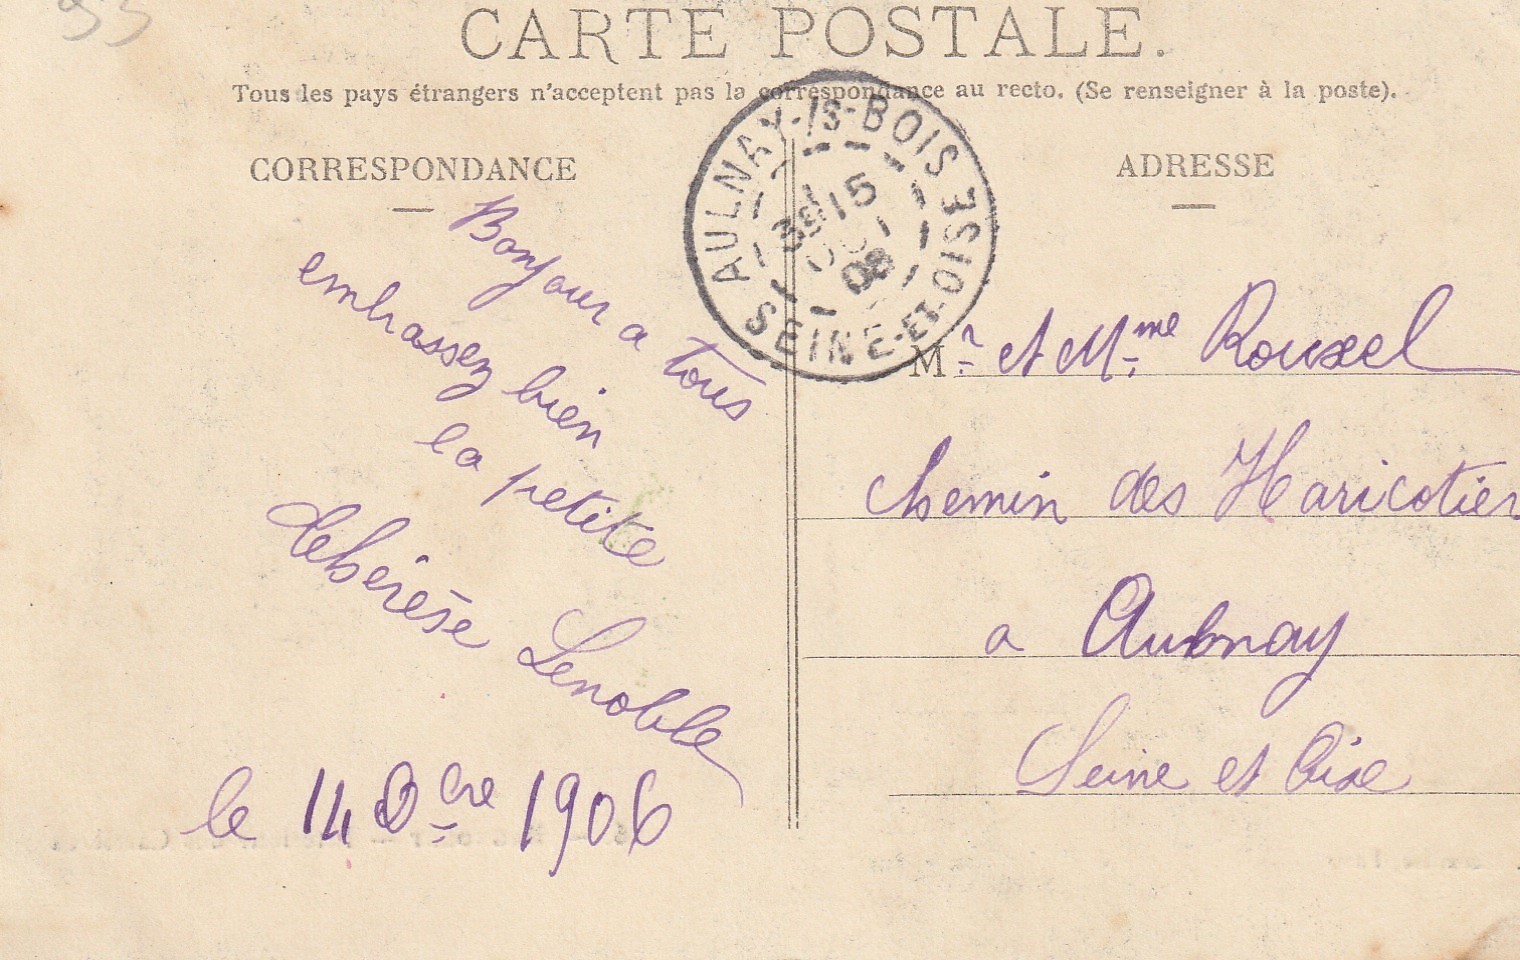 95
CARTE POSTALE.
Tous les pays étrangers n'acceptent pas la correspondance au recto. (Se renseigner à la poste).
CORRESPONDANCE
Bonjour a tous
embrassez bien
la petite
Thérèse Lenoble
le 14 Obre 1906
AULNAY-LS-BOIS
15
SEINE-ET-OISE
ADRESSE
Mr et Mme Rouxel
Chemin des Haricotier
a Aulnay
Seine et Oise